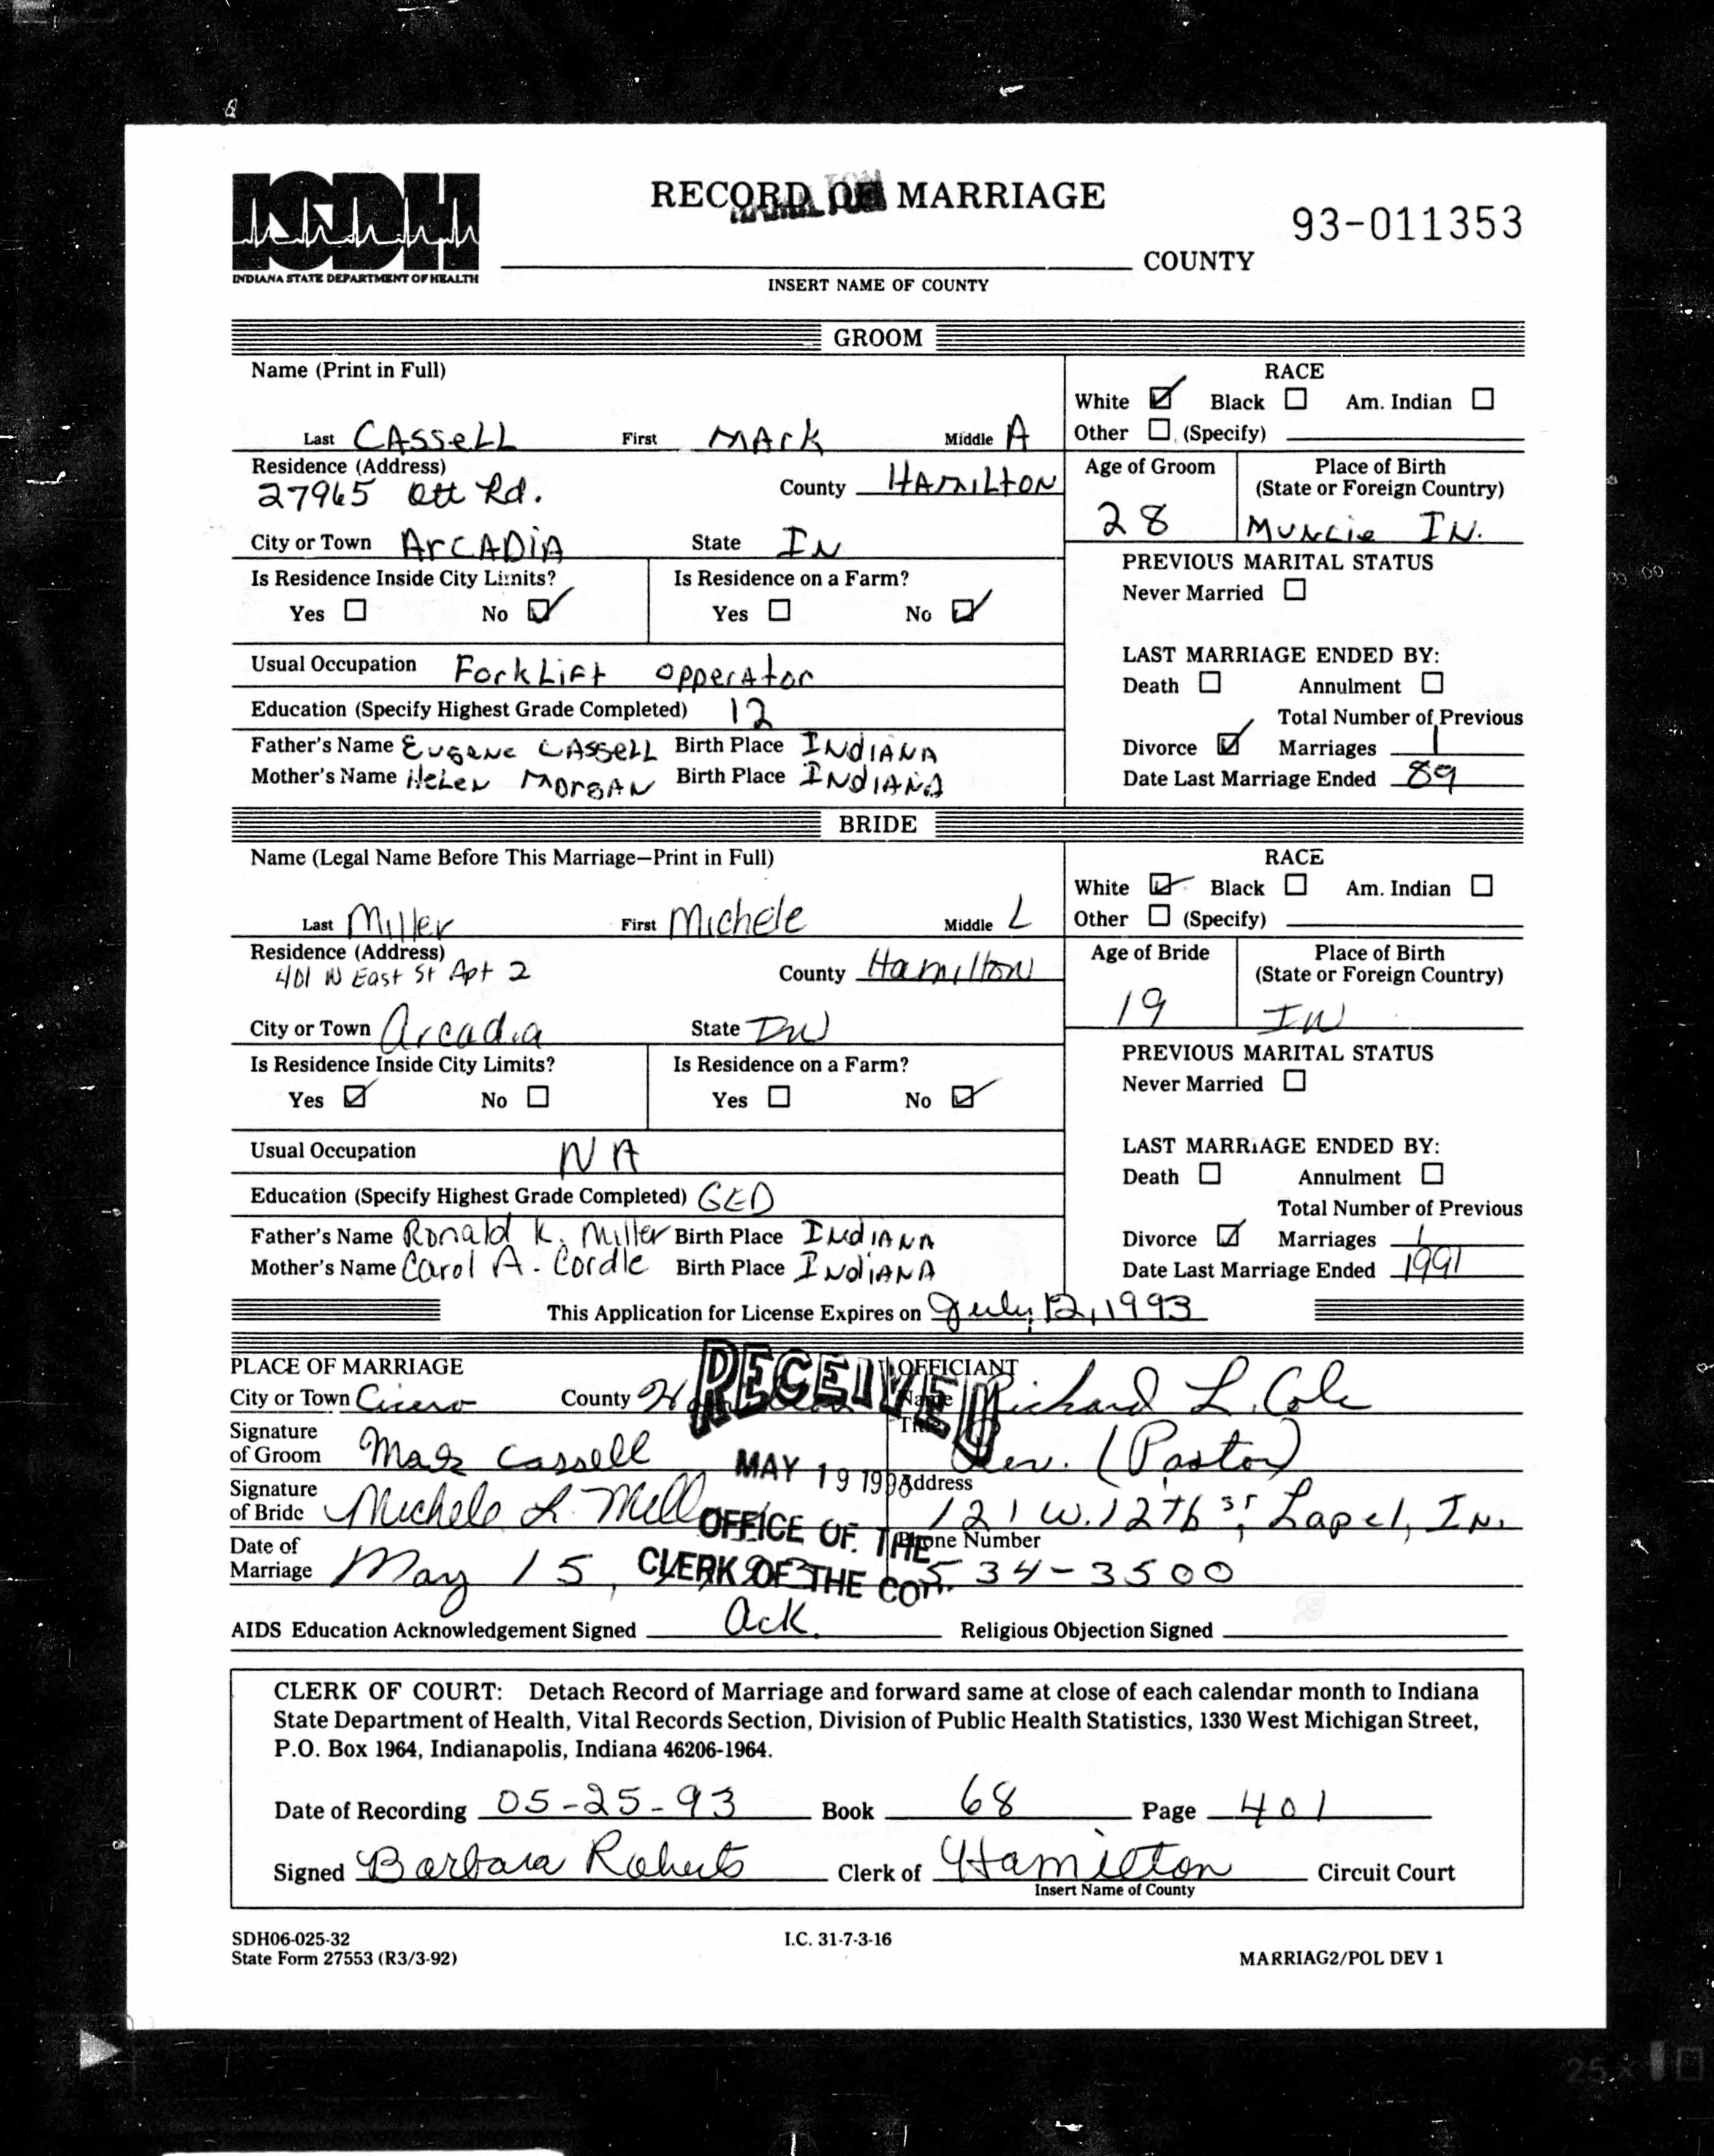 RECORD OF MARRIAGE
HAMILTON
93-011353
ISDH
INDIANA STATE DEPARTMENT OF HEALTH
COUNTY
INSERT NAME OF COUNTY
GROOM
Name (Print in Full)
Last CASSELL First MARK Middle A
RACE
White Black Am. Indian
Other (Specify)
Residence (Address)
27965 Ott Rd.
County HAMILTON
City or Town ARCADIA State IN
Age of Groom
28
Place of Birth
(State or Foreign Country)
Muncie IN.
Is Residence Inside City Limits?
Yes No
Is Residence on a Farm?
Yes No
PREVIOUS MARITAL STATUS
Never Married
Usual Occupation ForkLift opperator
Education (Specify Highest Grade Completed) 12
Father's Name Eugene CASSELL Birth Place INDIANA
Mother's Name HeLeN MorgAN Birth Place INDIANA
LAST MARRIAGE ENDED BY:
Death Annulment
Total Number of Previous
Divorce Marriages 1
Date Last Marriage Ended 89
BRIDE
Name (Legal Name Before This Marriage—Print in Full)
Last Miller First Michele Middle L
RACE
White Black Am. Indian
Other (Specify)
Residence (Address)
401 N East St Apt 2
County Hamilton
City or Town Arcadia State IN
Age of Bride
19
Place of Birth
(State or Foreign Country)
IN
Is Residence Inside City Limits?
Yes No
Is Residence on a Farm?
Yes No
PREVIOUS MARITAL STATUS
Never Married
Usual Occupation NA
Education (Specify Highest Grade Completed) GED
Father's Name Ronald K. Miller Birth Place INDIANA
Mother's Name Carol A. Cordle Birth Place INDIANA
LAST MARRIAGE ENDED BY:
Death Annulment
Total Number of Previous
Divorce Marriages 1
Date Last Marriage Ended 1991
This Application for License Expires on July 12, 1993
PLACE OF MARRIAGE
City or Town Cicero County
Signature
of Groom Mark Cassell
Signature
of Bride Michele L. Mill
Date of
Marriage May 15,
RECEIVED
MAY 19 1993
OFFICE OF THE
CLERK OF THE
OFFICIANT
Name Richard L. Cole
Title Rev. (Pastor)
Address
121 W. 12th St, Lapel, IN.
Phone Number
534-3500
AIDS Education Acknowledgement Signed Ack. Religious Objection Signed
CLERK OF COURT: Detach Record of Marriage and forward same at close of each calendar month to Indiana
State Department of Health, Vital Records Section, Division of Public Health Statistics, 1330 West Michigan Street,
P.O. Box 1964, Indianapolis, Indiana 46206-1964.
Date of Recording 05-25-93 Book 68 Page 401
Signed Barbara Roberts Clerk of Hamilton Circuit Court
Insert Name of County
SDH06-025-32
State Form 27553 (R3/3-92)
I.C. 31-7-3-16
MARRIAG2/POL DEV 1
25x